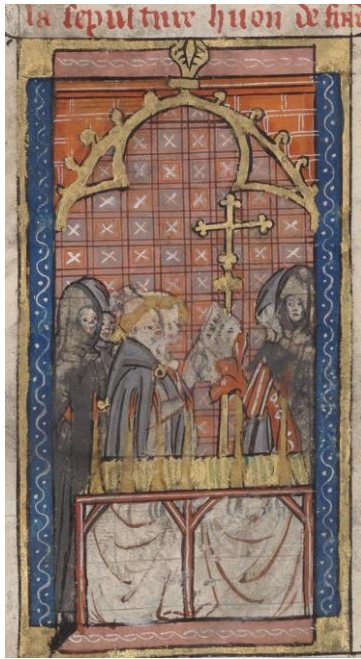 la sepulture huon de